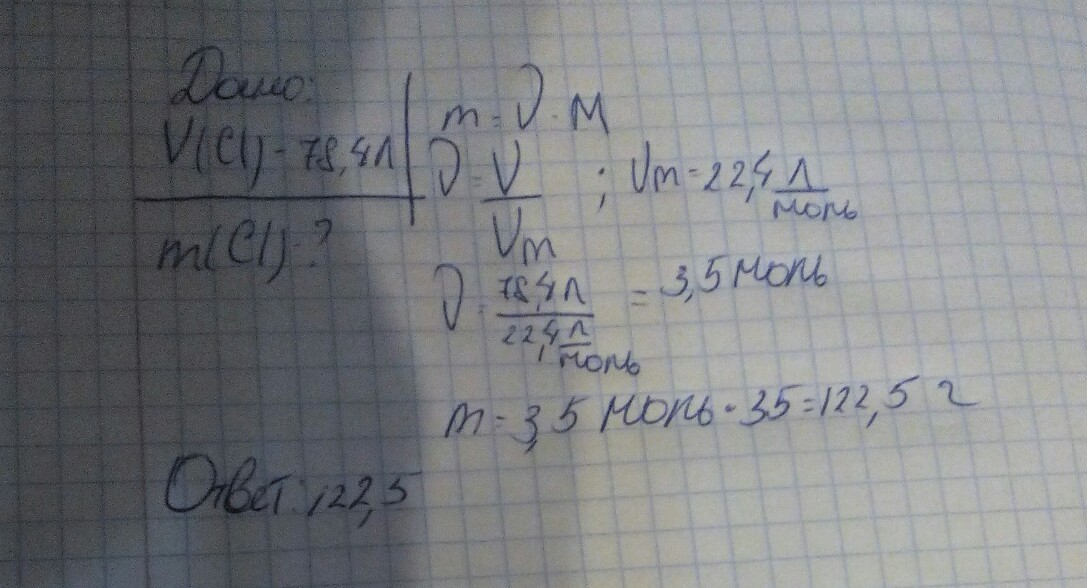 Дано:
V(Cl)-78,4л
m(Cl)-?
m=ν·M
ν=V/Vm ; Vm=22,4 л/моль
ν=78,4л/22,4 л/моль = 3,5 моль
m=3,5 моль·35=122,5 г
Ответ:122,5